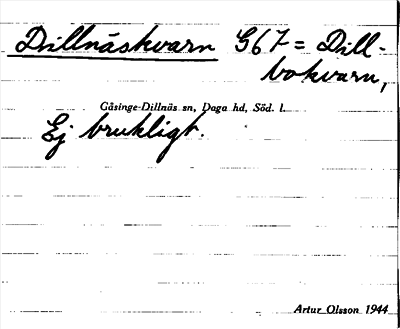 Dillnäskvarn G67 = Dill-
bokvarn,
Gåsinge-Dillnäs sn, Daga hd, Söd. l.
Ej brukligt.
Artur Olsson 1944